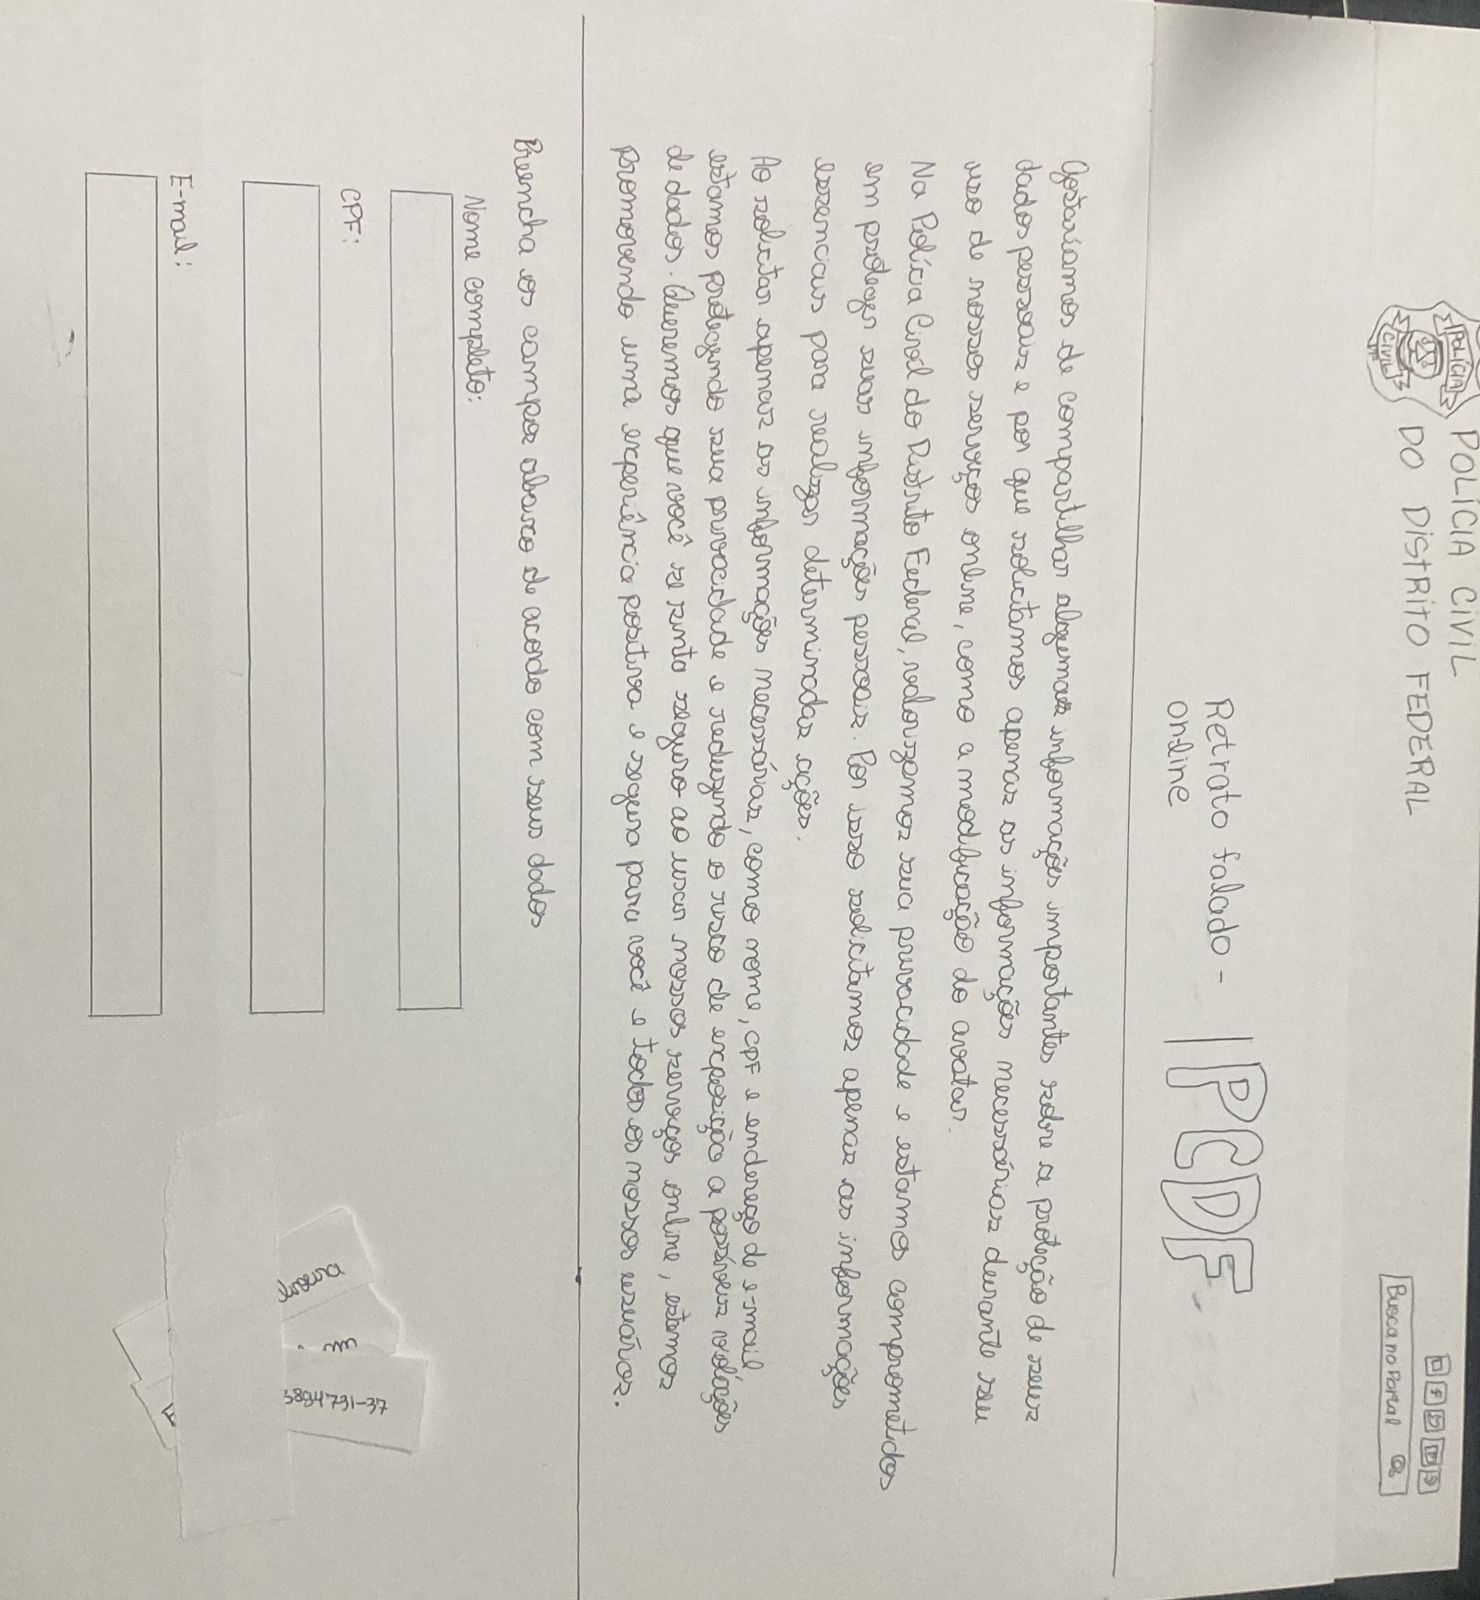 POLÍCIA
CIVIL
DF
POLÍCIA CIVIL
DO DISTRITO FEDERAL
Busca no Portal
Retrato falado -
online
PCDF
Gostaríamos de compartilhar algumas informações importantes sobre a proteção de seus
dados pessoais e por que solicitamos apenas as informações necessárias durante seu
uso de nossos serviços online, como a modificação do avatar.
Na Polícia Civil do Distrito Federal, valorizamos sua privacidade e estamos comprometidos
em proteger suas informações pessoais. Por isso solicitamos apenas as informações
essenciais para realizar determinadas ações.
Ao solicitar apenas as informações necessárias, como nome, CPF e endereço de e-mail,
estamos protegendo sua privacidade e reduzindo o risco de exposição a possíveis violações
de dados. Queremos que você se sinta seguro ao usar nossos serviços online, estamos
promovendo uma experiência positiva e segura para você e todos os nossos usuários.
Preencha os campos abaixo de acordo com seus dados
Nome completo:
CPF:
E-mail: